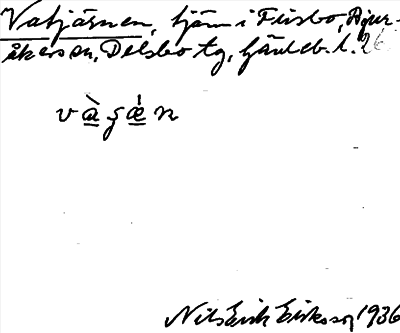 Vatjärnen, tjärn i Firsbo, Bjur-
åkers sn, Delsbo tg, Jämt eb. l. 26
v à ʂ ǽ n
Nils Erik Eriksson 1936